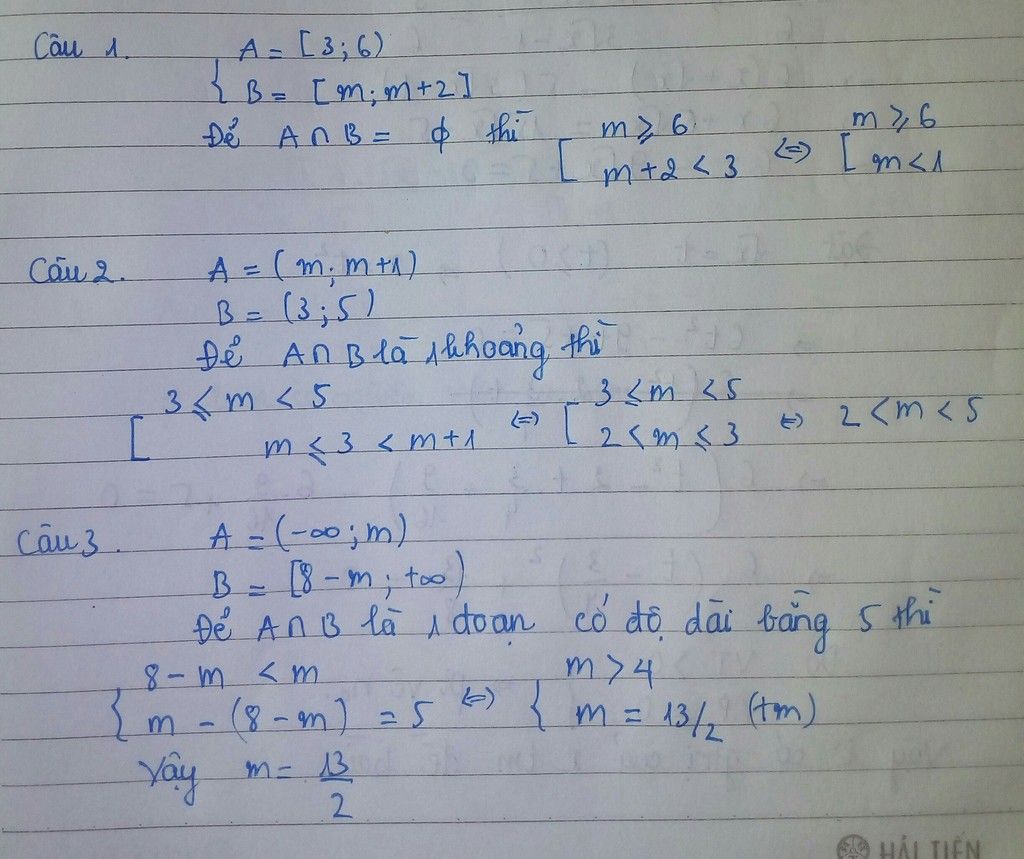 Câu 1. A = [3; 6)
{ B = [m; m+2]
Để A ∩ B = ϕ thì [ m ⩾ 6 ⇔ [ m ⩾ 6
m+2 < 3 m < 1
Câu 2. A = (m; m+1)
B = (3; 5)
Để A ∩ B là 1 khoảng thì
[ 3 ⩽ m < 5 ⇔ [ 3 ⩽ m < 5 ⇔ 2 < m < 5
m ⩽ 3 < m+1 2 < m ⩽ 3
Câu 3. A = (-∞; m)
B = [8 - m; +∞)
Để A ∩ B là 1 đoạn có độ dài bằng 5 thì
{ 8 - m < m ⇔ { m > 4
m - (8 - m) = 5 m = 13/2 (tm)
Vậy m = 13/2
HẢI TIẾN